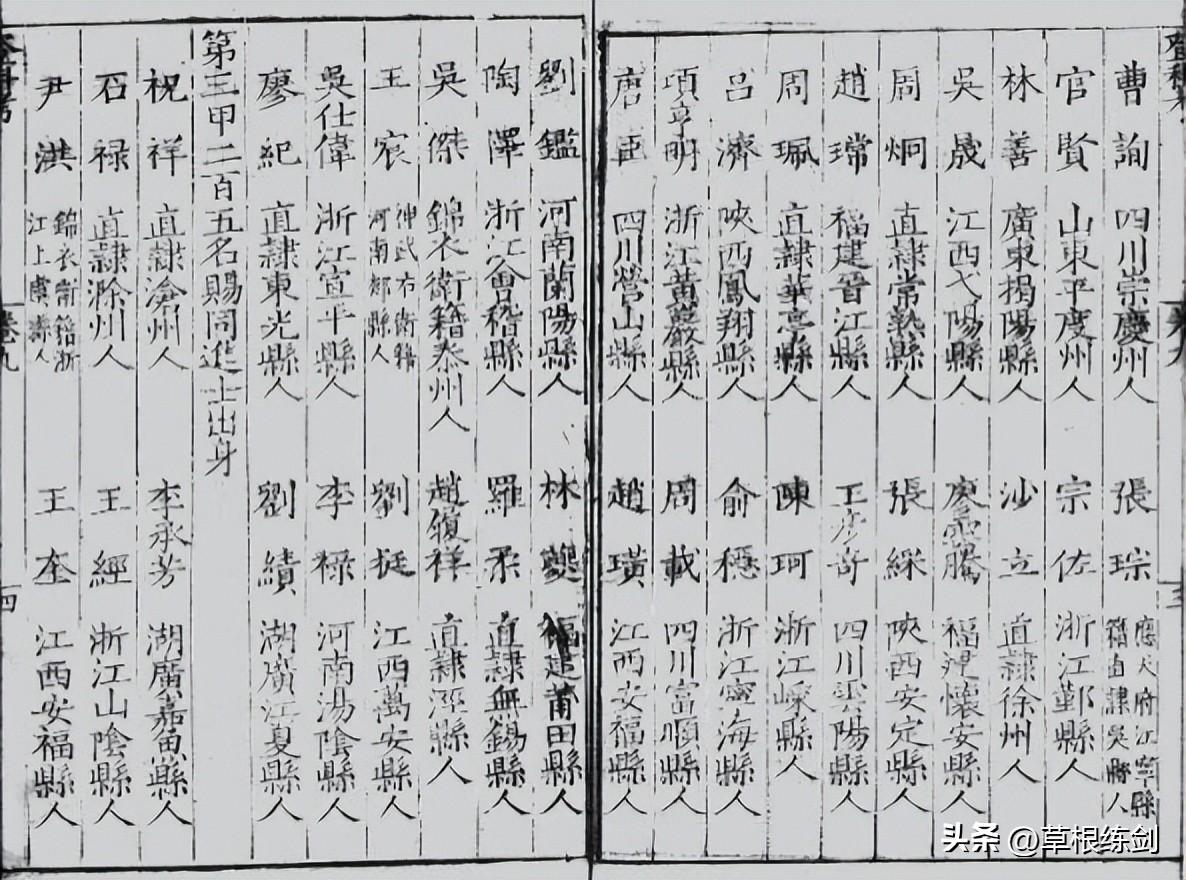 曹 詢 四川崇慶州人
張 琮 應天府江寧縣籍直隸吳縣人
官 賢 山東平度州人
宗 佐 浙江鄞縣人
林 善 廣東揭陽縣人
沙 立 直隸徐州人
吳 晟 江西弋陽縣人
廖雲騰 福建懷安縣人
周 炯 直隸常熟縣人
張 綵 陝西安定縣人
趙 瑺 福建晉江縣人
王彥奇 四川雲陽縣人
周 珮 直隸華亭縣人
陳 珂 浙江嵊縣人
呂 濟 陝西鳳翔縣人
俞 穩 浙江寧海縣人
項亨明 浙江黃巖縣人
周 載 四川富順縣人
唐 四川營山縣人
趙 璜 江西安福縣人
劉 鑑 河南蘭陽縣人
林 福建莆田縣人
陶 澤 浙江會稽縣人
羅 柔 直隸無錫縣人
吳 傑 錦衣衛籍泰州人
趙履祥 直隸涇縣人
王 宸 神武右衛籍河南郟縣人
劉 挺 江西萬安縣人
吳仕偉 浙江宣平縣人
李 祿 河南湯陰縣人
廖 紀 直隸東光縣人
劉 績 湖廣江夏縣人
第三甲二百五名賜同進士出身
祝 祥 直隸滄州人
李承芳 湖廣嘉魚縣人
石 禄 直隸滁州人
王 經 浙江山陰縣人
尹 洪 錦衣衛籍浙江上虞縣人
王 奎 江西安福縣人
卷九
四
头条 @草根练剑